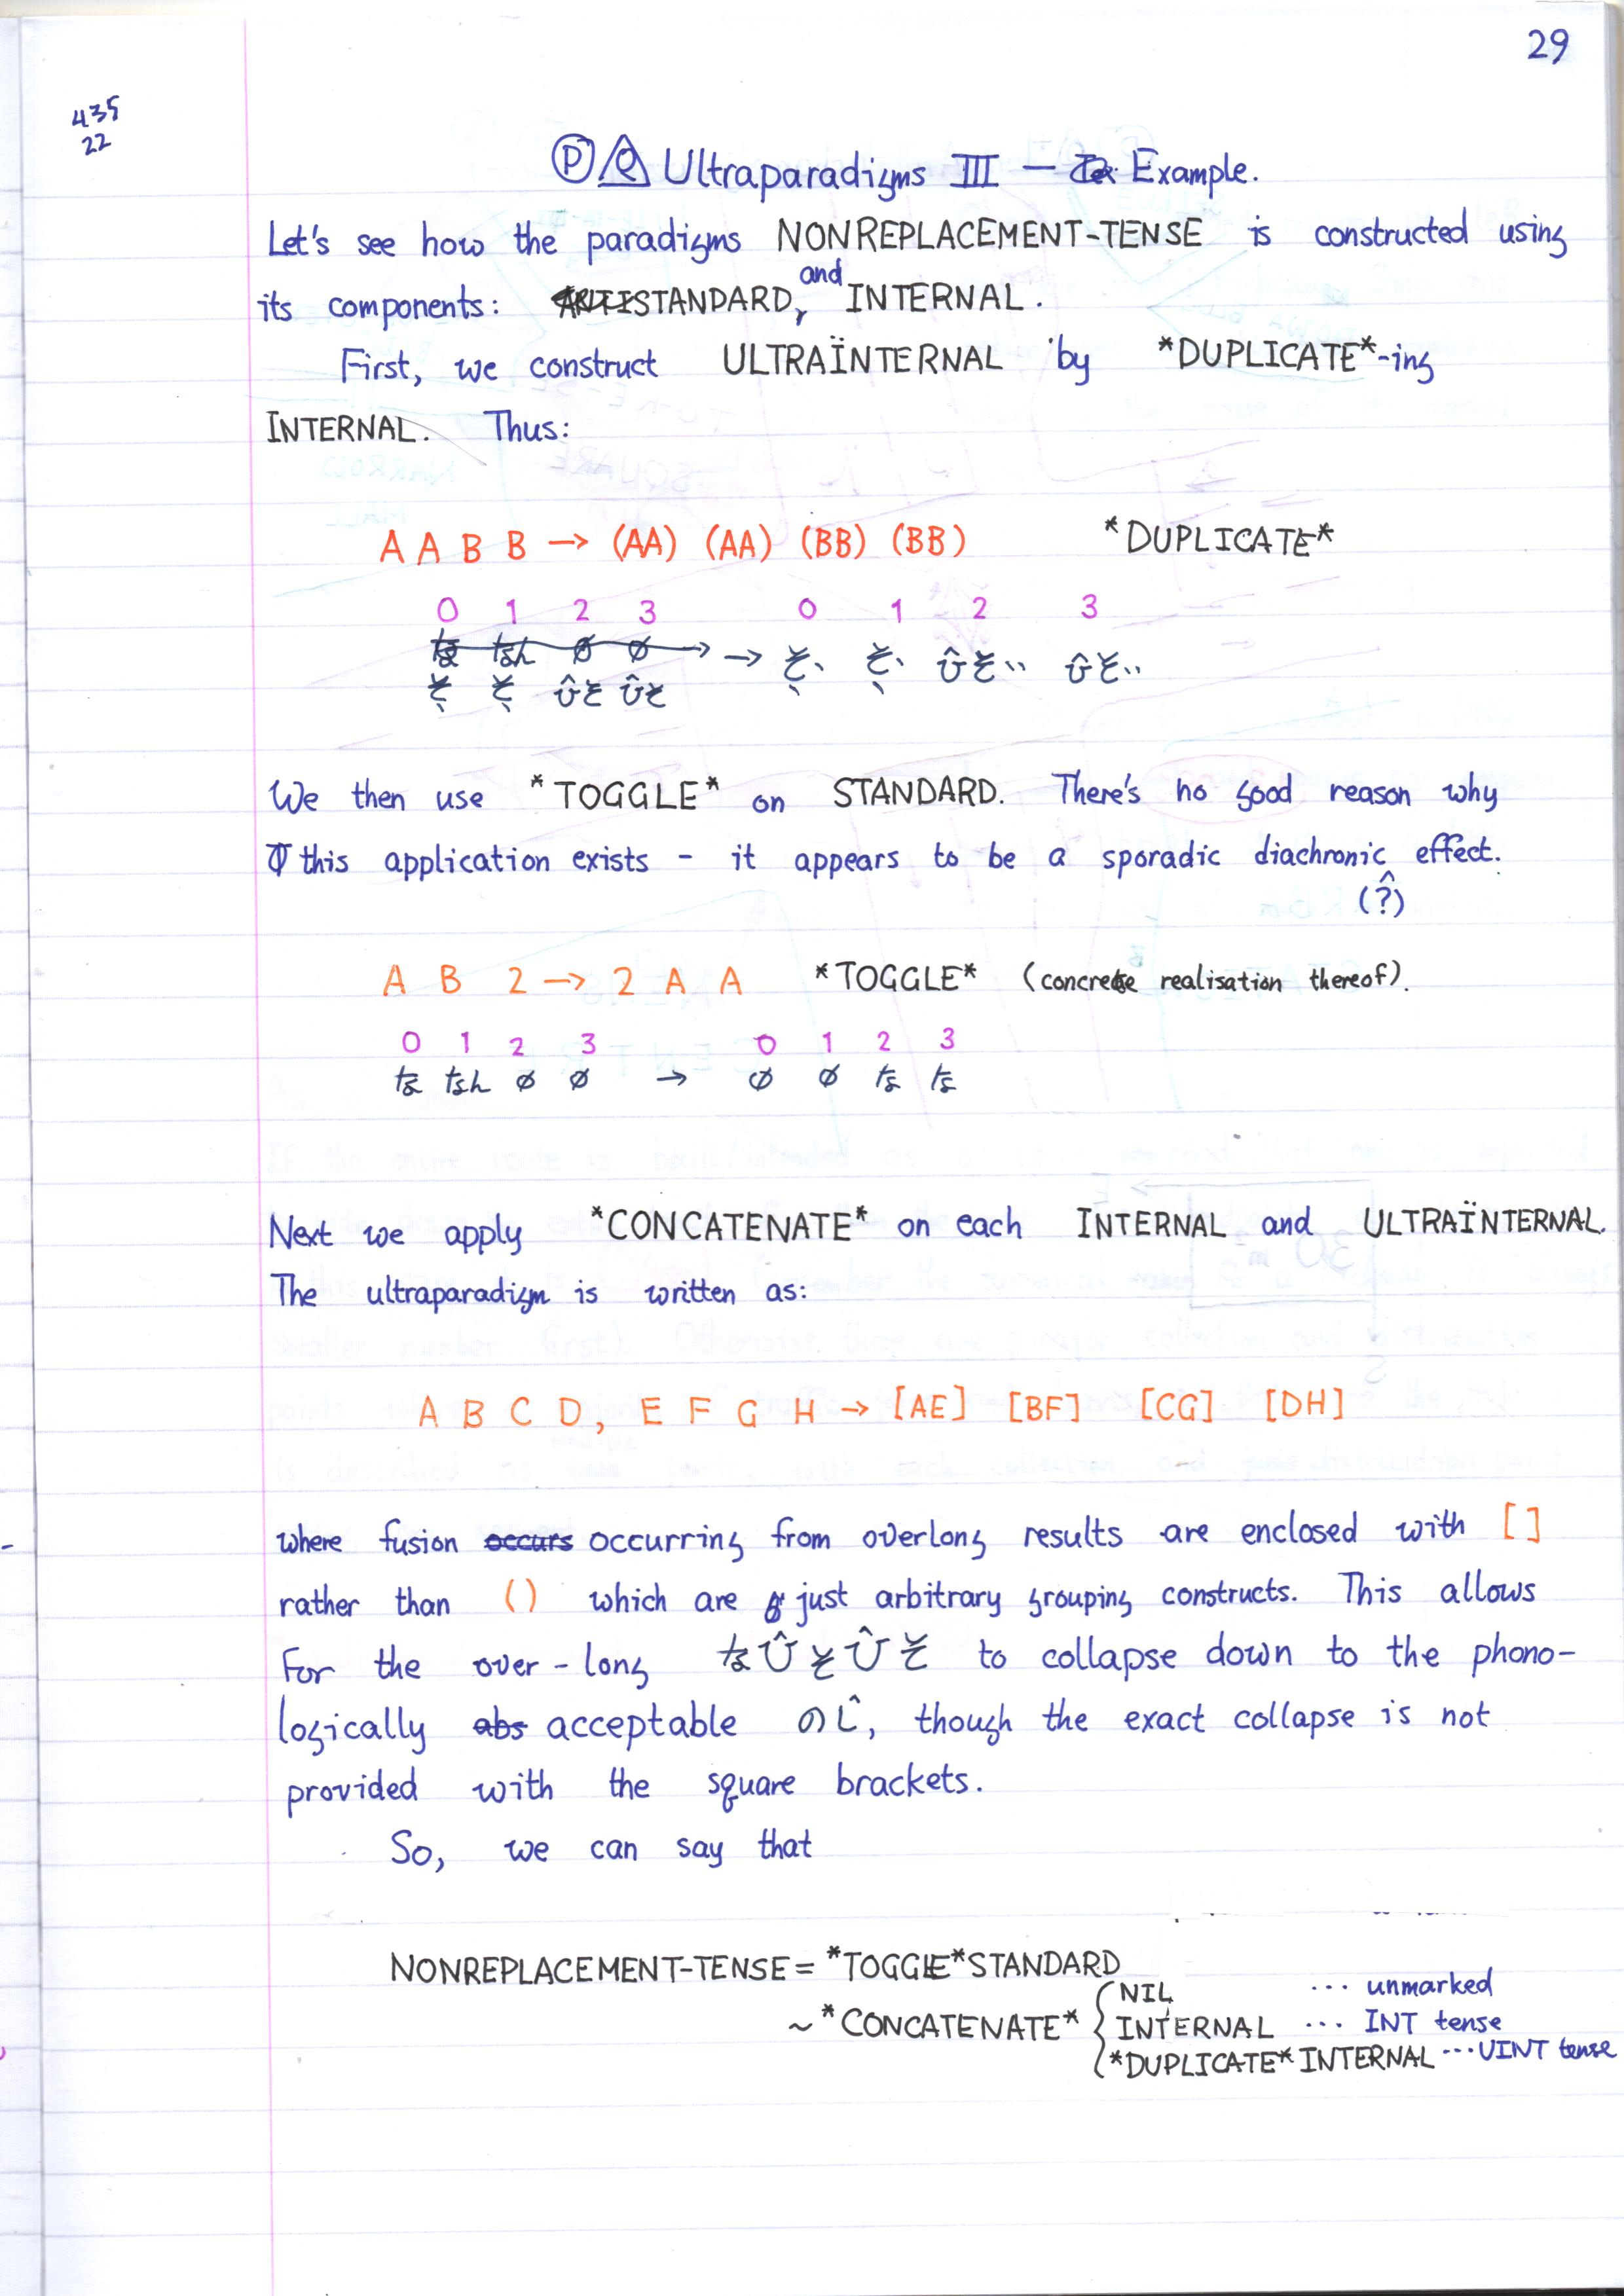 29
435
22
Ⓟ Q Ultraparadigms III — Example.
Let's see how the paradigms NONREPLACEMENT-TENSE is constructed using
its components: STANDARD, and INTERNAL.
First, we construct ULTRAÏNTERNAL by *DUPLICATE*-ing
INTERNAL. Thus:
A A B B → (AA) (AA) (BB) (BB) *DUPLICATE*
0 1 2 3 0 1 2 3
We then use *TOGGLE* on STANDARD. There's no good reason why
this application exists - it appears to be a sporadic diachronic effect.
(?)
A B 2 → 2 A A *TOGGLE* (concrete realisation thereof).
0 1 2 3 0 1 2 3
∅ ∅ → ∅ ∅
Next we apply *CONCATENATE* on each INTERNAL and ULTRAÏNTERNAL.
The ultraparadigm is written as:
A B C D, E F G H → [AE] [BF] [CG] [DH]
where fusion occurring from overlong results are enclosed with []
rather than () which are just arbitrary grouping constructs. This allows
for the over-long to collapse down to the phono-
logically acceptable, though the exact collapse is not
provided with the square brackets.
So, we can say that
NONREPLACEMENT-TENSE = *TOGGLE*STANDARD
NIL ... unmarked
~*CONCATENATE* { INTERNAL ... INT tense
*DUPLICATE*INTERNAL ... UINT tense